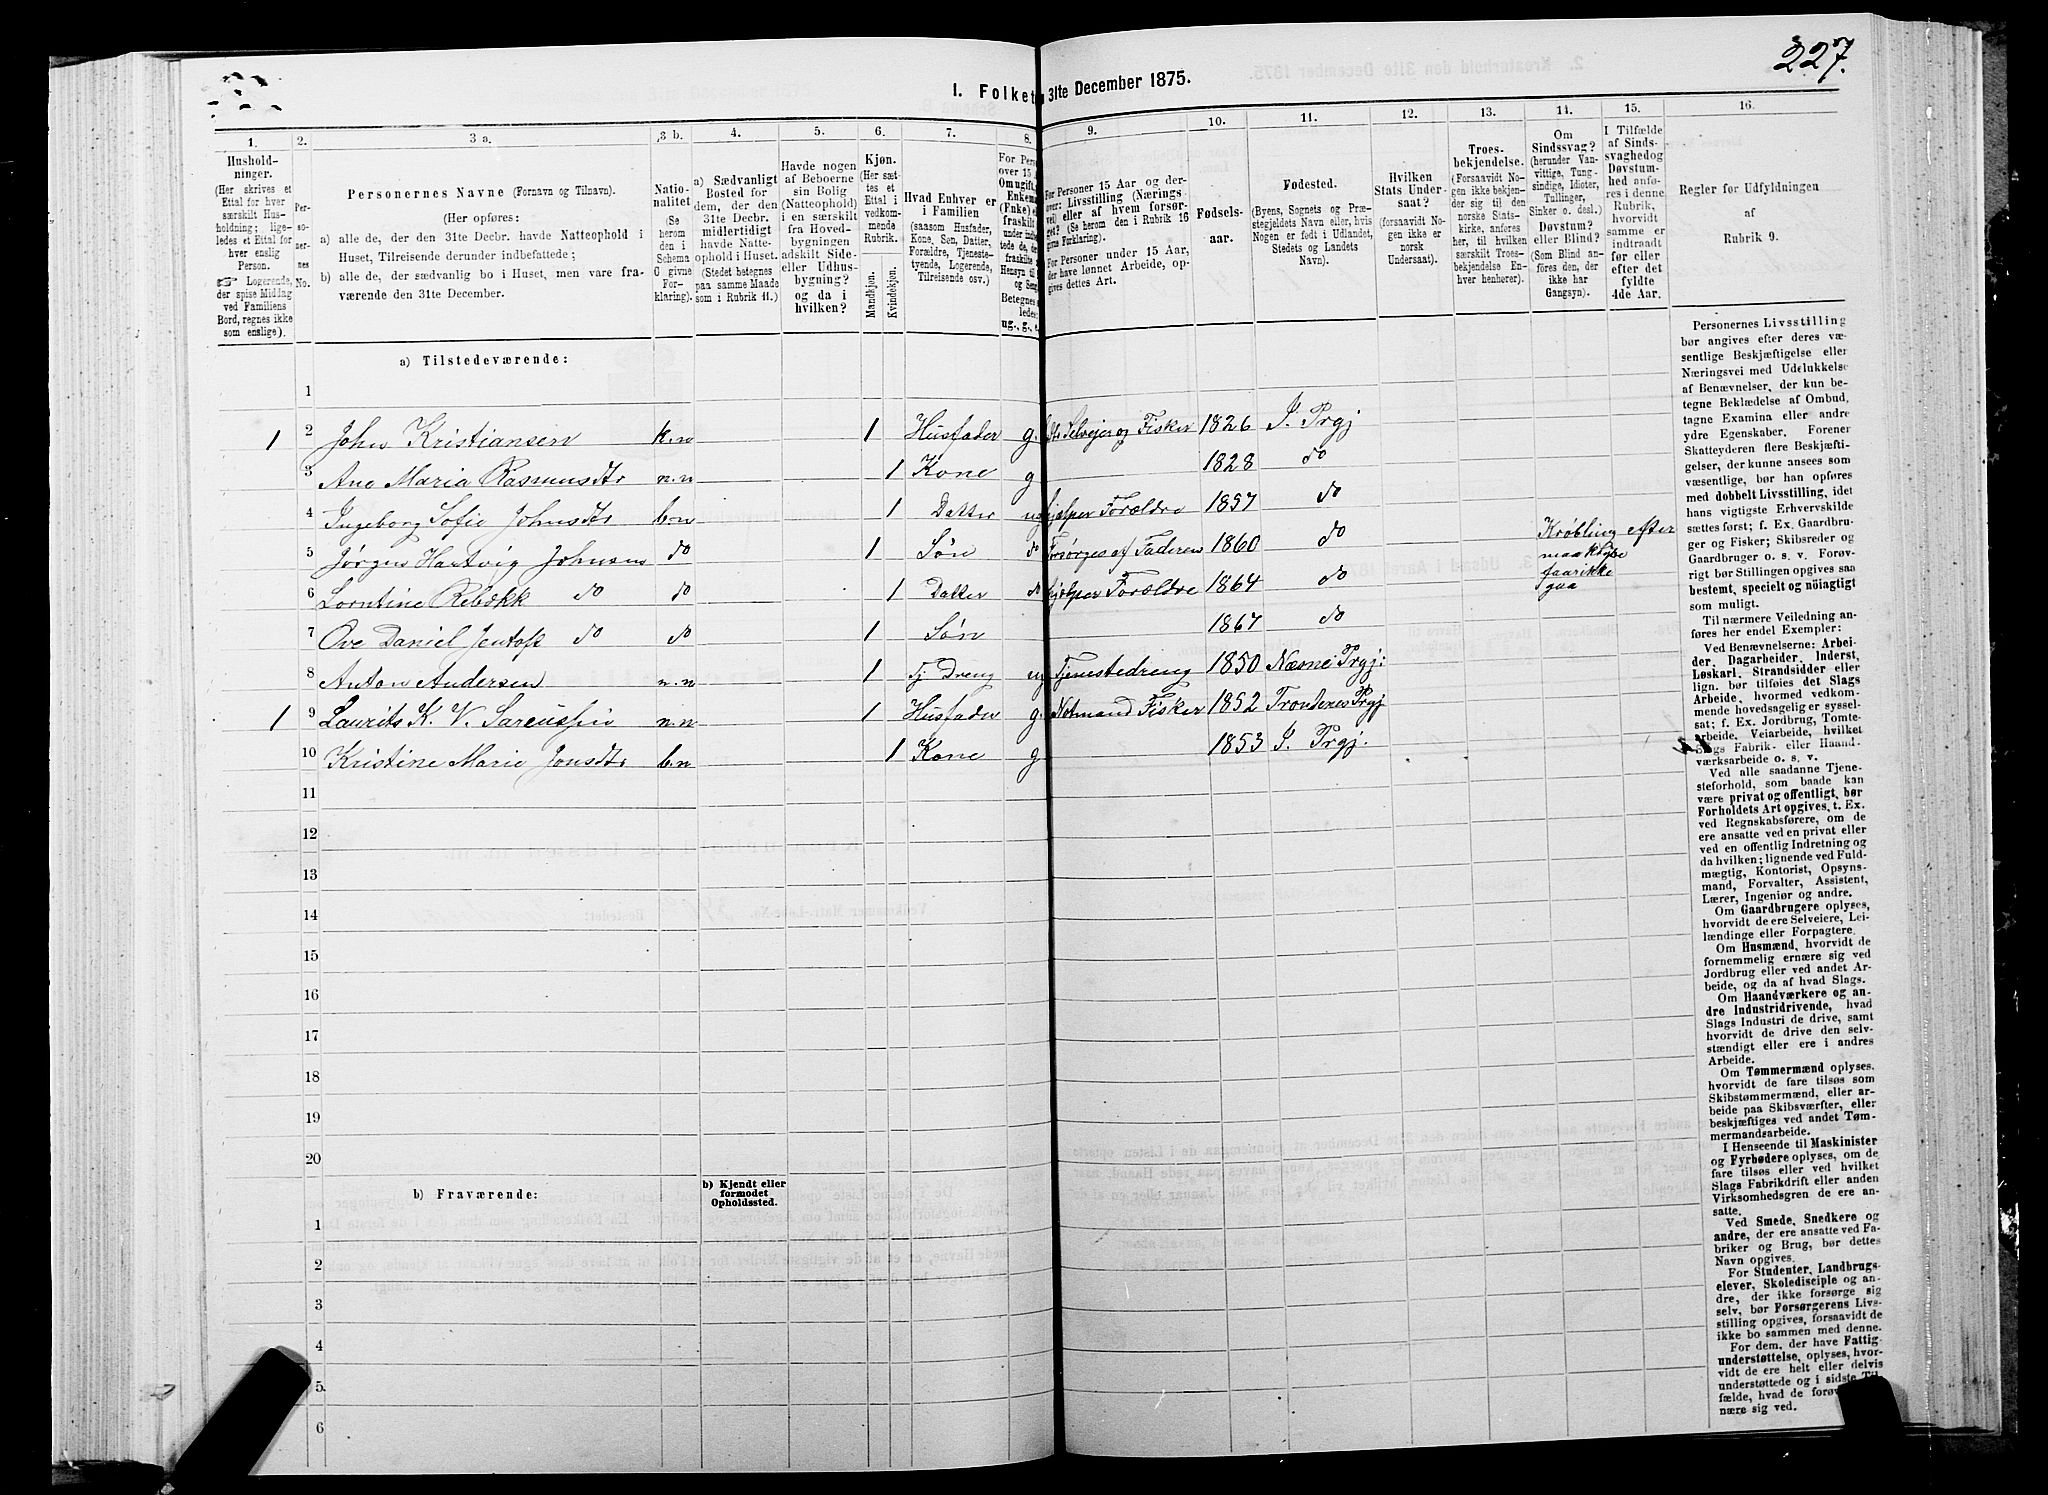 227.
I. Folket 31te December 1875.
1. 2. 3 a. 3 b. 4. 5. 6. 7. 8. 9. 10. 11. 12. 13. 14. 15. 16.
Hushold-
ninger.
(Her skrives et
Ettal for hver
særskilt Hus-
holdning; lige-
ledes et Ettal for
hver enslig
Person.
Logerende,
der spise Middag
ved Familiens
Bord, regnes ikke
som enslige).
Per-
so-
ner-
nes
No.
Personernes Navne (Fornavn og Tilnavn).
(Her opføres:
a) alle de, der den 31te Decbr. havde Natteophold i
Huset, Tilreisende derunder indbefattede;
b) alle de, der sædvanlig bo i Huset, men vare fra-
værende den 31te December.
Natio-
nalitet
(Se
herom
den i
Schema
C givne
For-
klaring).
a) Sædvanligt
Bosted for
dem, der den
31te Decbr.
midlertidigt
havde Natte-
ophold i Huset.
(Stedet betegnes
paa samme Maade
som i Rubrik 11.)
Havde nogen
af Beboerne
sin Bolig
(Natteophold)
i en særskilt
fra Hoved-
bygningen
adskilt Side-
eller Udhus-
bygning?
og da i
hvilken?
Kjøn.
(Her sæt-
tes et
Ettal i
vedkom-
mende
Rubrik.
Mandkjøn.
Kvindekjøn.
Hvad Enhver er
i Familien
(saasom Husfader,
Kone, Søn, Datter,
Forældre, Tjeneste-
tyende, Logerende,
Tilreisende osv.)
For Pers
over 15
Om ugift,
Enkema
(Enke)
fraskilt
Betegnes
ledes:
ug., g., e.
For Personer 15 Aar og der-
over: Livsstilling (Nærings
vei) eller af hvem forsør-
get? (Se herom den i Rubrik 16
givne Forklaring).
For Personer under 15 Aar,
der have lønnet Arbeide, op-
gives dettes Art.
Fødsels-
aar.
Fødested.
(Byens, Sognets og Præ-
stegjeldets Navn eller, hvis
Nogen er født i Udlandet,
Stedets og Landets
Navn).
Hvilken
Stats Under-
saat?
(forsaavidt No-
gen ikke er
norsk
Undersaat).
Troes-
bekjendelse.
(Forsaavidt No-
gen ikke bekjen-
der sig til den
norske Stats-
kirke, anføres
her, til hvilken
særskilt Troes-
bekjendelse En-
hver henhører).
Om
Sindssvag?
(herunder Van-
vittige, Tung-
sindige, Idioter,
Tullinger,
Sinker o. desl.)
Døvstum?
eller Blind?
(Som Blind an-
føres den, der
ikke har
Gangsyn).
I Tilfælde
af Sinds-
svaghed og
Døvstum-
hed anfø-
res i denne
Rubrik,
hvorvidt
samme er
indtraadt
før eller
efter det
fyldte
4de Aar.
Regler for Udfyldningen
af
Rubrik 9.
a) Tilstedeværende:
1
1 2 John Kristiansen k.n 1 Husfader g. Selveier og Fisker 1826 I. Prgj
3 Ane Maria Rasmusdtr n.n 1 Kone g 1828 do
4 Ingeborg Sofie Johnsdtr b.n 1 Datter ug hjælper Forældre 1857 do
5 Jørgen Hartvig Johnsen do 1 Søn do Forsørges af Faderen 1860 do Krøbling efter
6 Lorntine Rebækk do do 1 Datter do hjælper Forældre 1864 do faar ikke
gaa
7 Ove Daniel Jentoft do do 1 Søn 1867 do
8 Anton Andersen n.n 1 Tj Dreng ug Tjenestedreng 1850 Næsne Prgj:
1 9 Laurits K. V. n.n 1 Husfader g. Notmand Fisker 1852 Trondenes Prgj
10 Kristine Marie Jonsdtr b.n 1 Kone g 1853 I. Prgj.
11
12
13
14
15
16
17
18
19
20
b) Fraværende:
b) Kjendt eller
formodet
Opholdssted.
1
2
3
4
5.
6
Personernes Livsstilling
bør angives efter deres væ-
sentlige Beskjæftigelse eller
Næringsvei med Udelukkelse
af Benævnelser, der kun be-
tegne Beklædelse af Ombud,
tagne Examina eller andre
ydre Egenskaber. Forener
Skatteyderen flere Beskjæfti-
gelser, der kunne ansees som
væsentlige, bør han opføres
med dobbelt Livsstilling, idet
hans vigtigste Erhvervskilde
sættes først; f. Ex. Gaardbru-
ger og Fisker; Skibsreder og
Gaardbruger o. s. v. Forøv-
rigt bør Stillingen opgives saa
bestemt, specielt og nöiagtigt
som muligt.
Til nærmere Veiledning an-
føres her endel Exempler:
Ved Benævnelserne: Arbei-
der, Dagarbeider, Inderst,
Løskarl, Strandsidder eller
lign. bør tilføies det Slags
Arbeide, hvormed vedkom-
mende hovedsagelig er syssel-
sat; f. Ex. Jordbrug, Tomte-
arbeide, Veiarbeide, hvilket
Slags Fabrik- eller Haand-
værksarbeide o. s. v.
Ved alle saadanne Tjene-
steforhold, som baade kan
være privat og offentligt, bør
Forholdets Art opgives, t. Ex.
ved Regnskabsførere, om de
ere ansatte ved en privat eller
ved en offentlig Indretning og
da hvilken; lignende ved Fuld-
mægtig, Kontorist, Opsyns-
mand, Forvalter, Assistent,
Lærer, Ingeniør og andre.
Om Gaardbrugere oplyses,
hvorvidt de ere Selveiere, Lei-
lændinge eller Forpagtere.
Om Husmænd, hvorvidt de
fornemmelig ernære sig ved
Jordbrug eller ved andet Ar-
beide, og da af hvad Slags.
Om Haandværkere og an-
dre Industridrivende, hvad
Slags Industri de drive, samt
hvorvidt de drive den selv-
stændigt eller ere i andres
Arbeide.
Om Tømmermænd oplyses,
hvorvidt de fare tilsøs som
Skibstømmermænd, eller ar-
beide paa Skibsværfter, eller
beskjæftiges ved andet Tøm-
mermandsarbeide.
I Henseende til Maskinister
og Fyrbødere oplyses, om de
fare tilsøs eller ved hvilket
Slags Fabrikdrift eller anden
Virksomhedsgren de ere an-
satte.
Ved Smede, Snedkere og
andre, der ere ansatte ved Fa-
briker og Brug, bør dettes
Navn opgives.
For Studenter, Landbrugs-
elever, Skoledisciple og an-
dre, der ikke forsørge sig
selv, bør Forsørgerens Livs-
stilling opgives, forsaavidt de
ikke bo sammen med denne.
For dem, der have Fattig-
understøttelse, oplyses, hvor-
vidt de ere helt eller delvis
understøttede og i sidste Til-
fælde, hvad de forøv
nære sig ved.